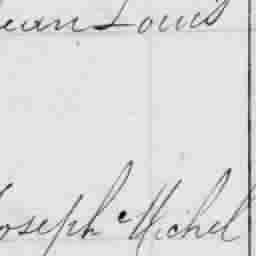 Jean Louis
Joseph Michel